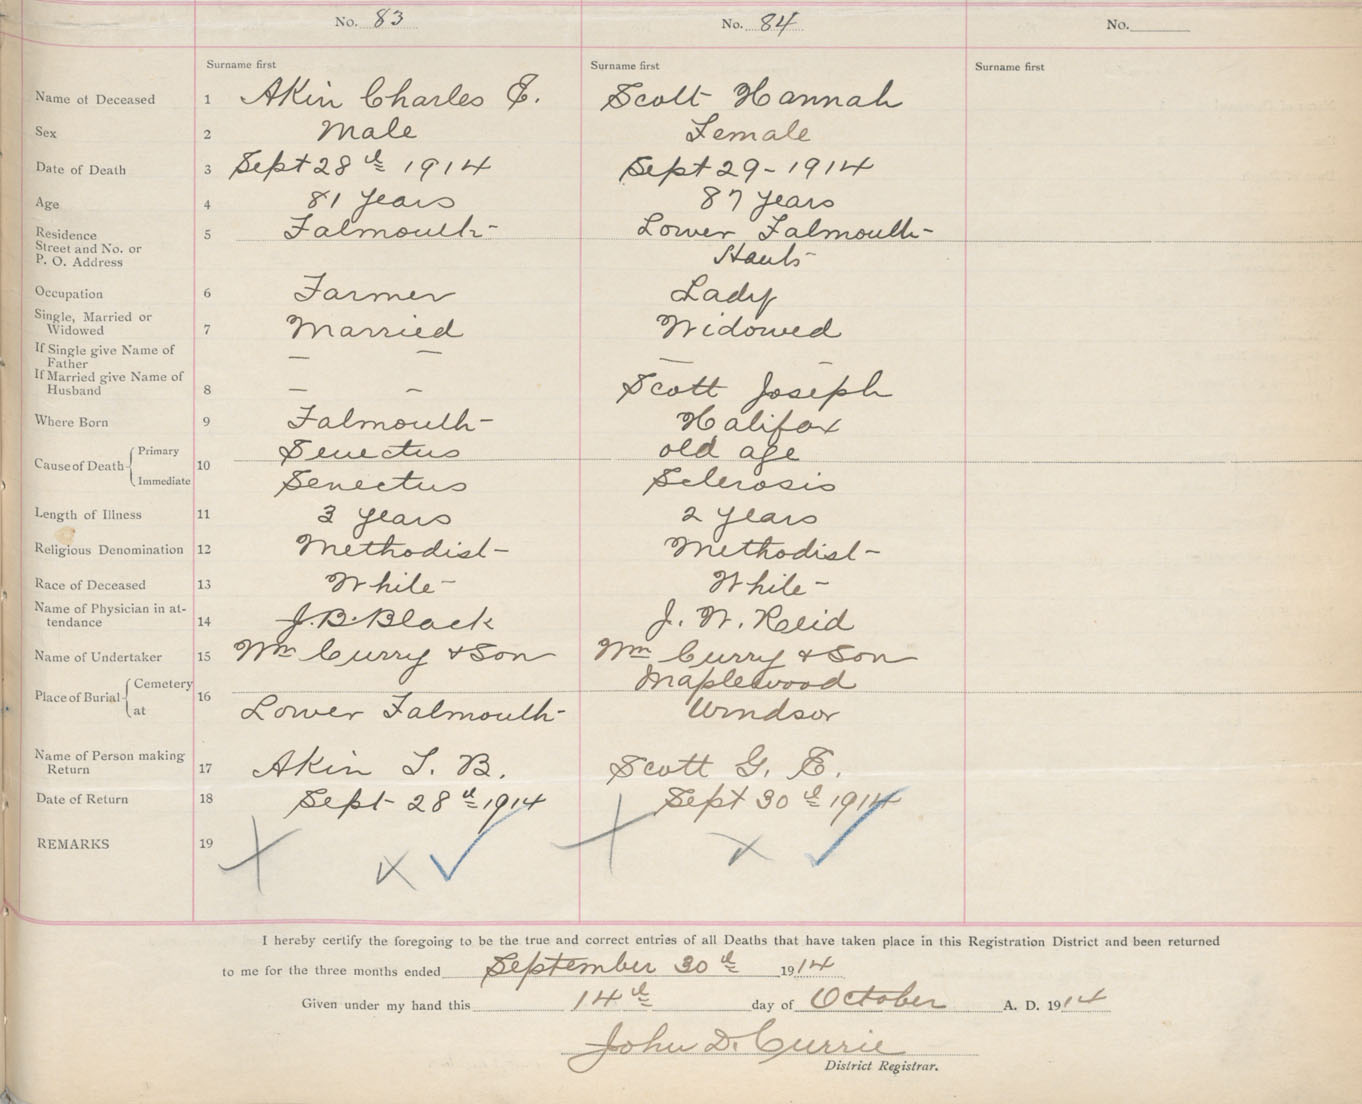 No. 83 No. 84 No.
Surname first Surname first Surname first
Name of Deceased 1 Akin Charles E. Scott Hannah
Sex 2 Male Female
Date of Death 3 Sept 28th 1914 Sept 29 - 1914
Age 4 81 years 87 years
Residence 5 Falmouth - Lower Falmouth -
Street and No. or
P. O. Address Hants -
Occupation 6 Farmer Lady
Single, Married or
Widowed 7 Married Widowed
If Single give Name of
Father — — — —
If Married give Name of
Husband 8 — — Scott Joseph
Where Born 9 Falmouth - Halifax
Cause of Death { Primary 10 Senectus old age
Immediate Senectus Sclerosis
Length of Illness 11 3 years 2 years
Religious Denomination 12 Methodist - Methodist -
Race of Deceased 13 White - White -
Name of Physician in at-
tendance 14 J. B. Black J. W. Reid
Name of Undertaker 15 Wm Curry & Son Wm Curry & Son
Place of Burial { Cemetery 16 Maplewood
at Lower Falmouth - Windsor
Name of Person making
Return 17 Akin T. B. Scott G. E.
Date of Return 18 Sept 28th 1914 Sept 30th 1914
REMARKS 19 x x ✓ x x ✓
I hereby certify the foregoing to be the true and correct entries of all Deaths that have taken place in this Registration District and been returned
to me for the three months ended September 30th 1914
Given under my hand this 14th day of October A. D. 1914
John D. Currie
District Registrar.